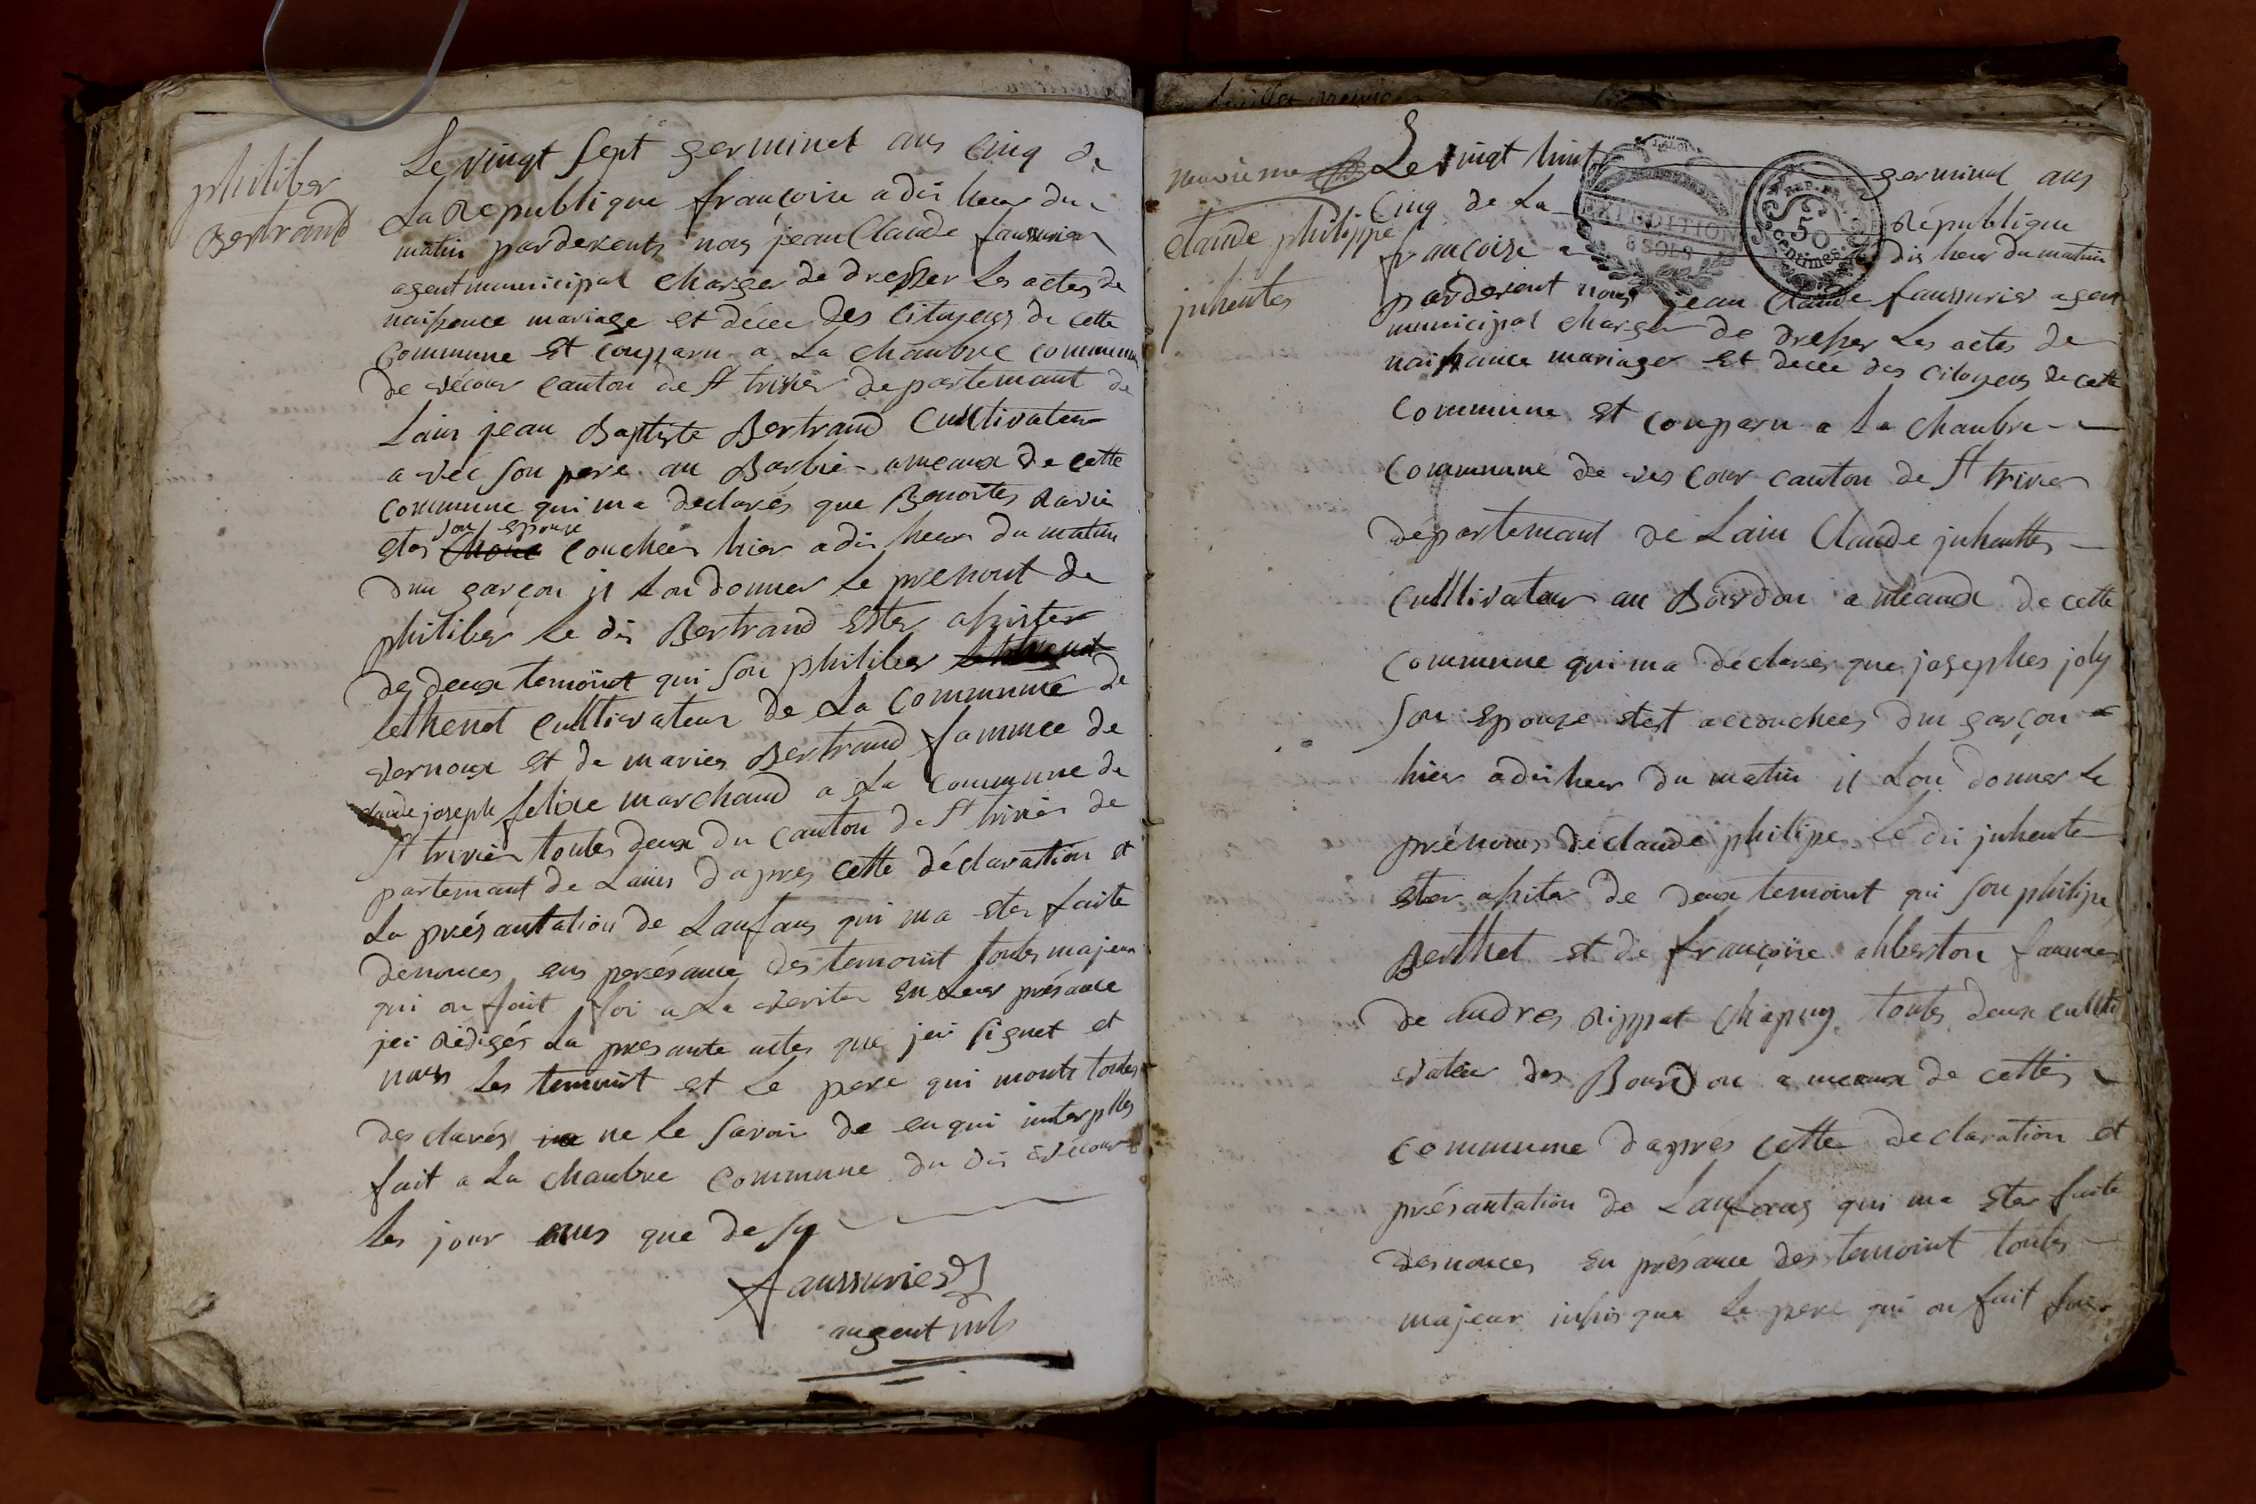 philiber
Bertrand
Le vingt sept germinet ans Cinq de
La République françoise a dis heur du
matin pardevents nous jean Claude faussurier
agent municipal charger de dresser Les actes de
naissence mariage et décée des Citoyens de cette
Commune Et conparu a La chanbre commune
de vécour canton de St trivier departemant de
Lain jean Baptiste Bertrand Cultivateur
avec son pere au Barbié ameaux de cette
commune qui ma declarés que Benoites Ravie
son Epouse
etes couchées hier a dis heur du matin
dun garçon il Lon donner Le prenont de
philiber Le dis Bertrand Etes assister
de deux temoint qui son philiber
lethenet cultivateur de La Commune de
vernoux et de maries Bertrand famme de
claude joseph felixe marchand a La Commune de
St trivier toutes deux du canton de St trivier de
partemant de Lains dapres cette déclaration et
La présantation de Lanfans qui ma etes faite
denonces ens présance des temoint toutes majeur
qui on fait foi a La verites En Leur présance
jei Rédigés La presante actes que jei signet et
nom Les temoint et Le pere qui monts toutes
des clarés ne le savoir de en qui interplles
fait a La chanbre Commune du dis vécour
Les jour ans que de sy
faussurier
augent mls
neuvieme
claude philippe
juhentes
Le vingt huit germinal ans
Cinq de La République
françoise a dis heur du matin
pardevent nous jean Claude faussurier agent
municipal charger de dresser Les actes de
naissance mariages et décée des Citoyens de cette
Commune Et conparu a La chanbre
Commune de vescour canton de St trivier
départemant de Lain Claude juhenttes
Culltivateur au Bourdon a meaux de cette
Commune qui ma déclarés que josephes joly
son Epouze etest accouchées dun garçon
hier a dis heur du matin il Lon donner Le
prénoms de claude philipe Le dis juhente
Eter assiter de deux temoint qui son philipe
Berthet et de françoise ahberton fammes
de andres Rippat Chapuy toutes deux cullti
vateur des Bourdon a meaux de cettes
commune dapres cette declaration et
présantation de Lanfans qui ma Etes faite
desnonces En présance des temoint toutes
majeur insis que Le pere qui on fait foi
EXPEDITION
6 SOLS
REP. FRA.
50
centimes